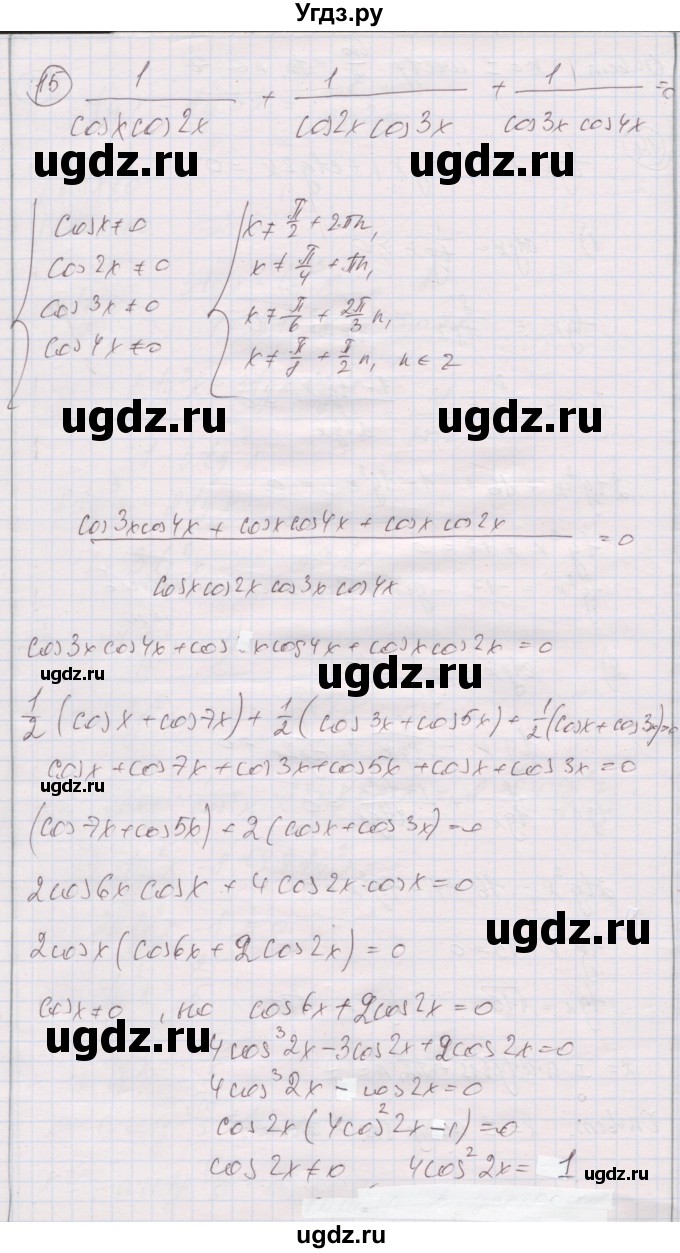 Угдз.ру
15 1/(cosx cos2x) + 1/(cos2x cos3x) + 1/(cos3x cos4x) = 0
ugdz.ru ugdz.ru
{ cosx ≠ 0 { x ≠ π/2 + 2πn,
cos2x ≠ 0 x ≠ π/4 + πn,
cos3x ≠ 0 x ≠ π/6 + 2π/3 n,
cos4x ≠ 0 x ≠ π/8 + π/2 n, n ∈ Z
ugdz.ru ugdz.ru
(cos3x cos4x + cosx cos4x + cosx cos2x)/(cosx cos2x cos3x cos4x) = 0
cos3x cos4x + cos x cos4x + cosx cos2x = 0
ugdz.ru ugdz.ru
1/2 (cosx + cos7x) + 1/2 (cos3x + cos5x) + 1/2 (cosx + cos3x) = 0
cosx + cos7x + cos3x + cos5x + cosx + cos3x = 0
ugdz.ru
(cos7x + cos5x) + 2(cosx + cos3x) = 0
2cos6x cosx + 4cos2x·cosx = 0
ugdz.ru
2cosx (cos6x + 2cos2x) = 0
cosx ≠ 0, но cos6x + 2cos2x = 0
ugdz.ru
4cos³2x - 3cos2x + 2cos2x = 0
4cos³2x - cos2x = 0
cos2x (4cos²2x - 1) = 0
cos2x ≠ 0 4cos²2x = 1
ugdz.ru
Угдз.ру